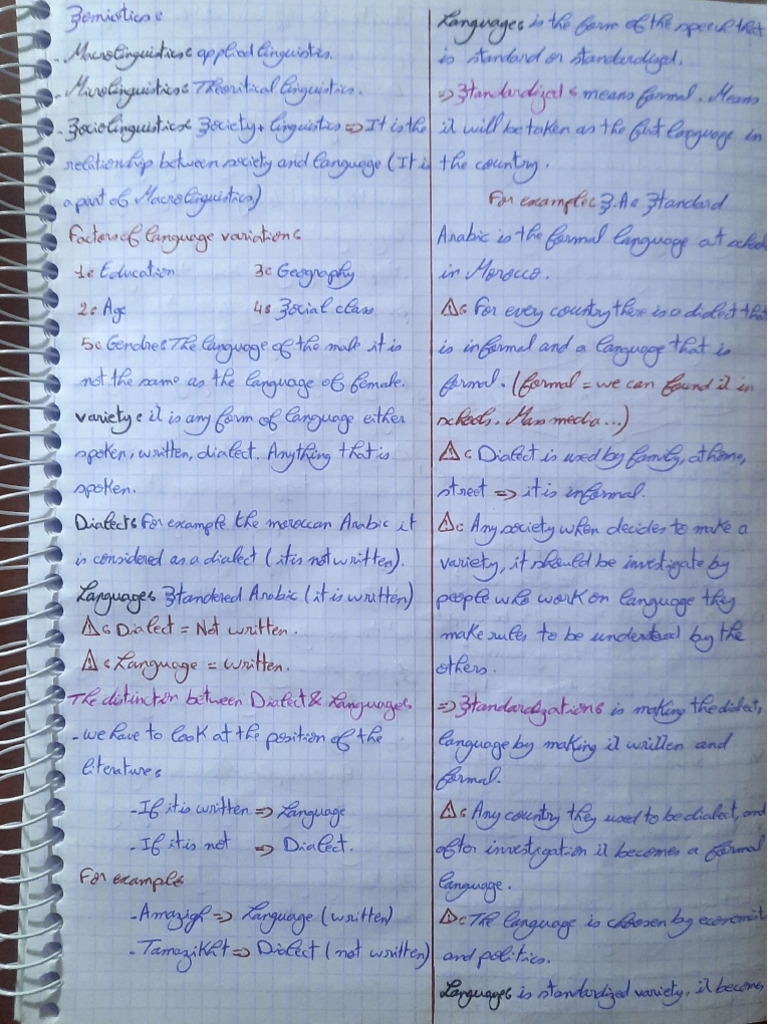 Semiotics:
- Macrolinguistics: applied linguistics.
- Microlinguistics: Theoritical linguistics.
- Sociolinguistics: Society + linguistics => It is the
relationship between society and language (It is
a part of Macrolinguistics)
Factors of language variations:
1: Education 3: Geography
2: Age 4: Social class
5: Gendre: The language of the male it is
not the same as the language of female.
variety: it is any form of language either
spoken, written, dialect. Anything that is
spoken.
Dialect: For example the moroccan Arabic it
is considered as a dialect (it is not written).
Language: Standered Arabic (it is written)
⚠: Dialect = Not written.
⚠: Language = written.
The distinction between Dialect & Language:
- we have to look at the position of the
literature:
- If it is written => Language
- If it is not => Dialect.
For example
- Amazigh => Language (written)
- Tamazikht => Dialect (not written)
Language: is the form of the speech that
is standard or standardized.
=> Standardized: means formal. Means
it will be taken as the first language in
the country.
For example: S.A: Standard
Arabic is the formal language at school
in Morocco.
⚠: For every country there is a dialect that
is informal and a language that is
formal. (formal = we can found it in
schools. Mass media...)
⚠: Dialect is used by family, at home,
street => it is informal.
⚠: Any society when decides to make a
variety, it should be investigate by
people who work on language they
make rules to be understood by the
others.
=> Standardization: is making the dialect,
language by making it written and
formal.
⚠: Any country they used to be dialect, and
after investigation it becomes a formal
language.
⚠: The language is choosen by economist
and politics.
Language: is standardized variety, it becomes